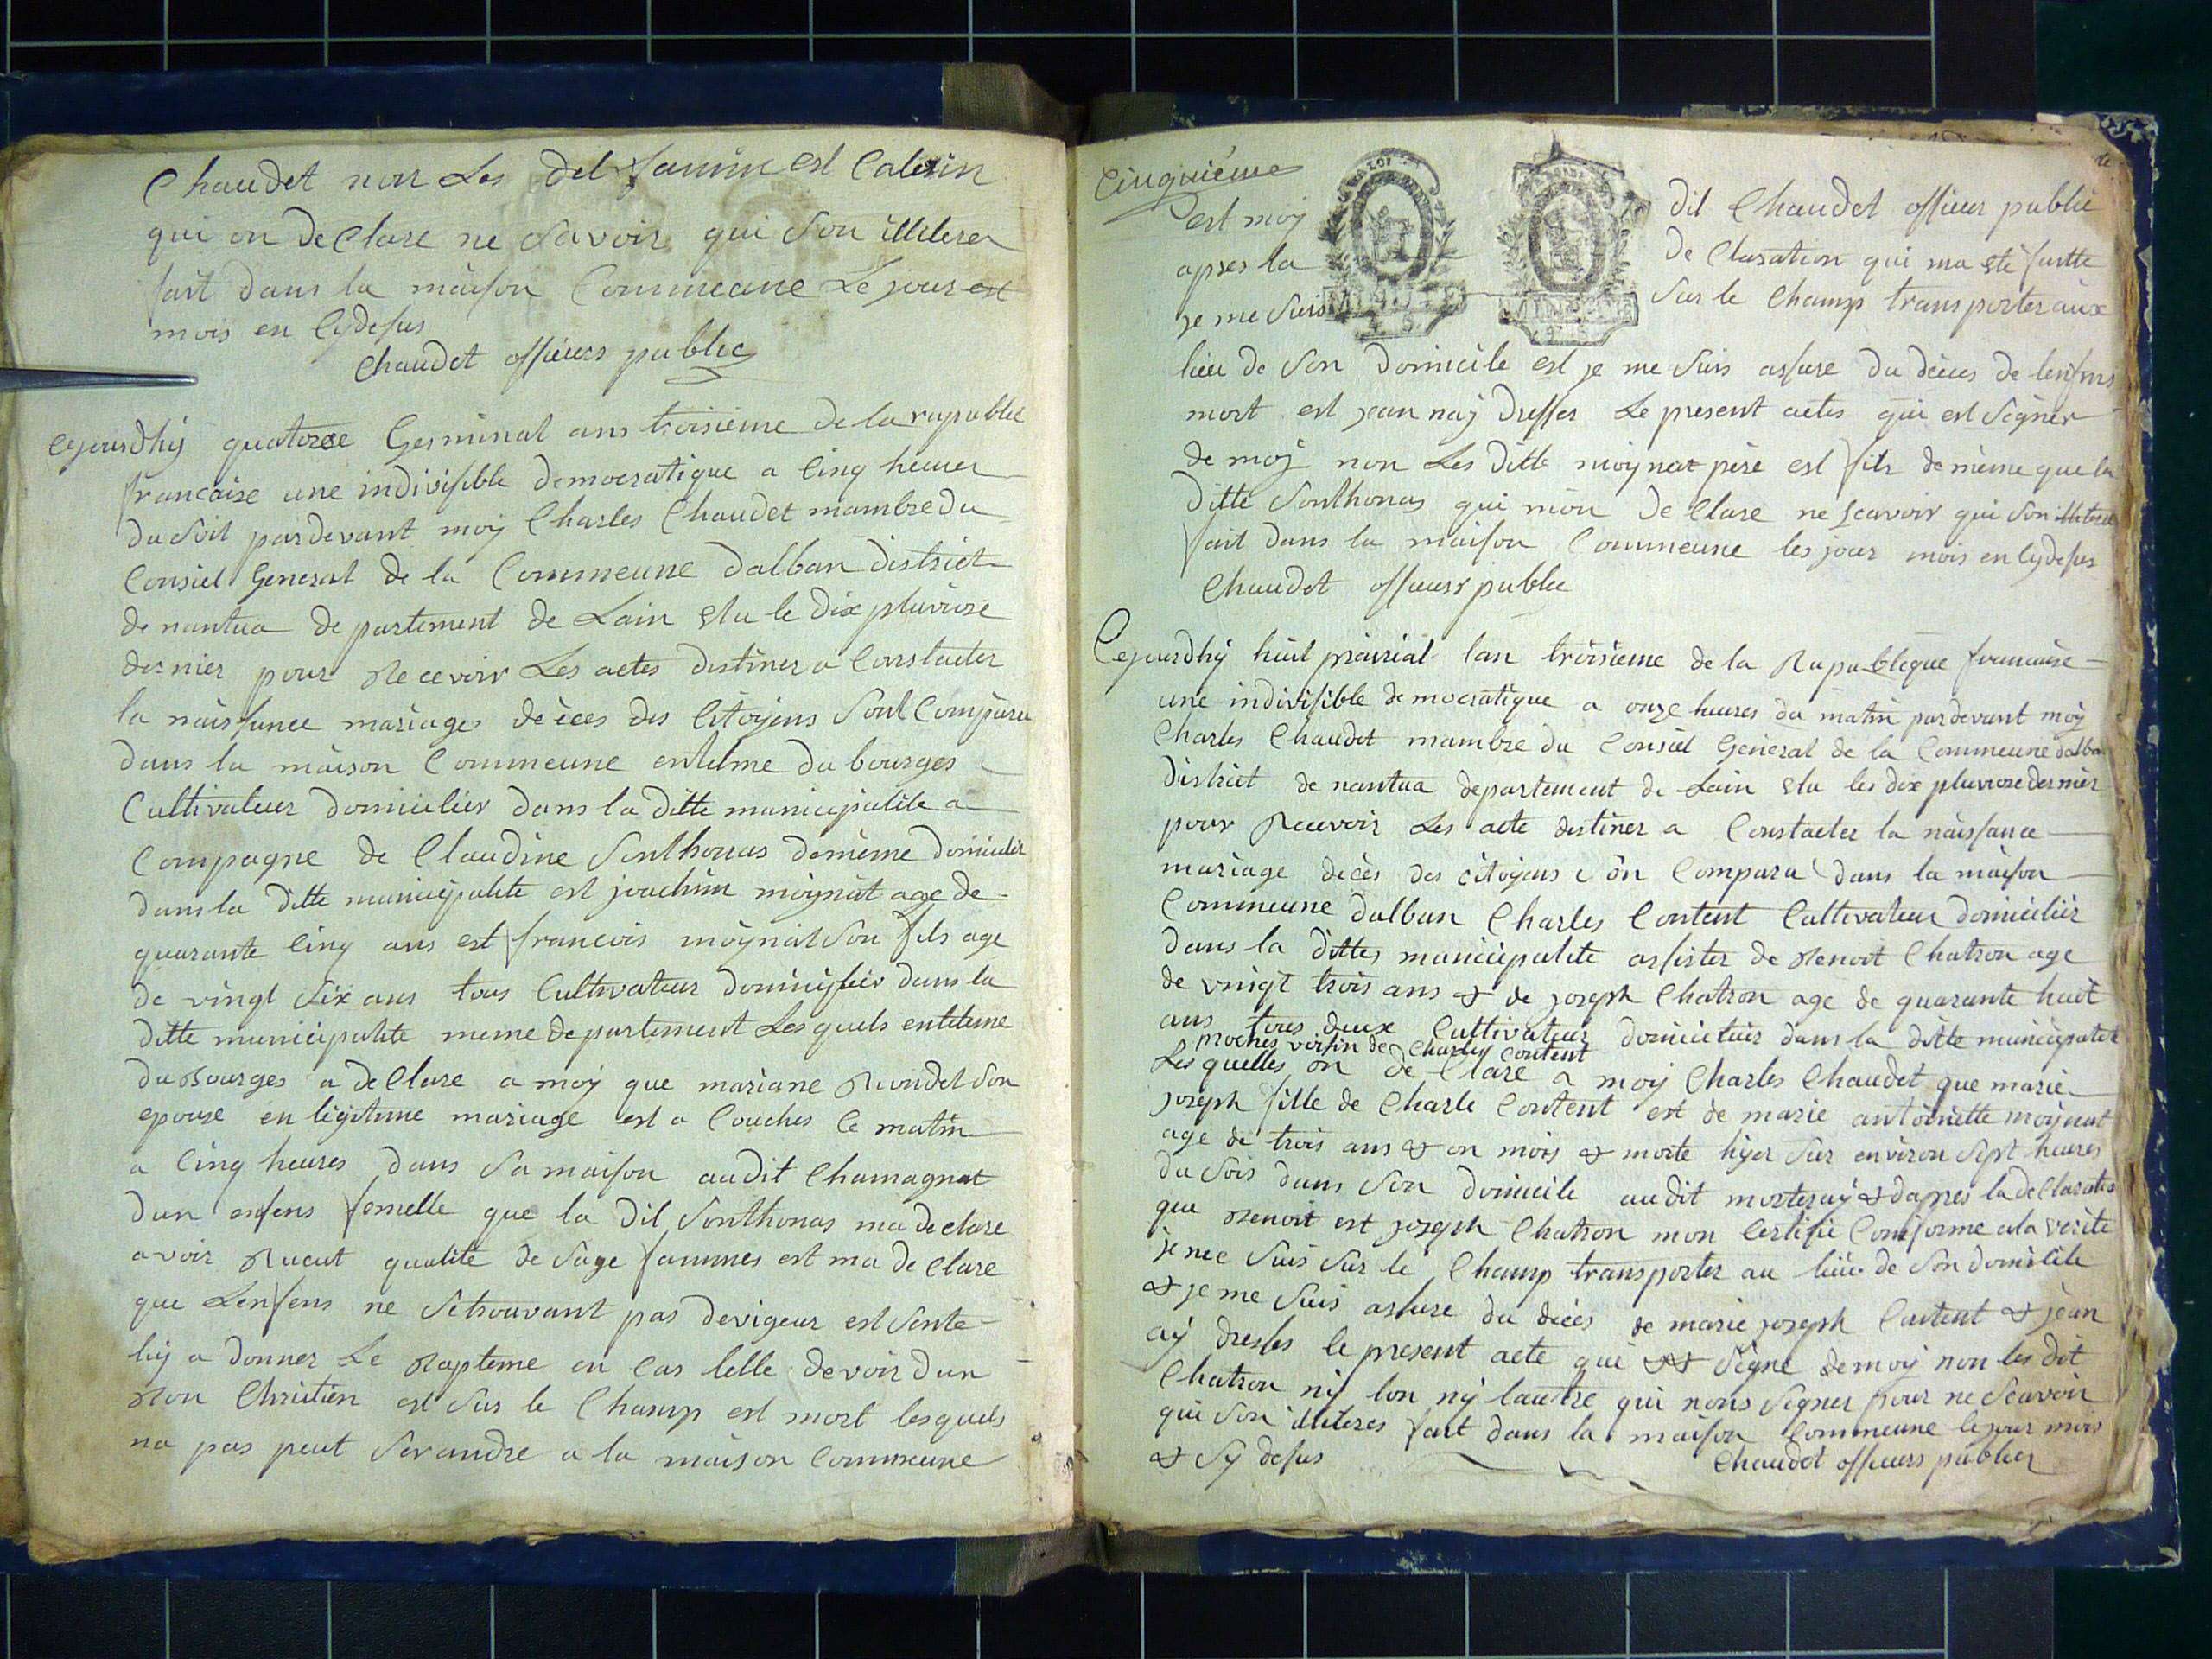 Chaudet non Les dit Jamin est Calerin
qui on de Clare ne Savoir qui Son illiterer
fait dans la maison Commeune Le jour est
mois en Cydesus
Chaudet officiers public
Cejourdhÿ quatorze Germinal ans troisieme de la rupublic
francaise une indivisible democratique a Cinq heurer
du Soit pardevant moÿ Charles Chaudet mambre du
Consiel General de la Commeune dalban district
de nantua de partement de Lain elu le dix pluviose
dernier pour Recevoir Les actes destiner a Constacter
la naissance mariages dèces des Citoyens Sont Comparu
dans la maison Commeune entelme du bourges
Cultivateur domicilier dans la ditte municipalite a
Compagne de Claudine Sonthonas demème domicilier
dans la ditte municipalite est joachim moynat age de
quarante Cinq ans est francois moynat Son fils age
de vingt Six ans tous Cultivateur domicilier dans la
ditte municipalite meme departement Les quels entelme
du Bourges a de Clare a moÿ que mariane Rondet Son
epouse en legitime mariage est a Couches Ce matin
a Cinq heures dans Sa maison audit Chamagnat
dun enfens femelle que la dit Sonthonas ma declare
avoir Rueut qualite de Sage fammes est ma de Clare
que Lenfens ne Setrouvant pas devigeur est Sente
luy a donner Le Bapteme en Cas lelle devoir dun
Bon Chrietien est Sur le Champ est mort lesquels
na pas peut Serandre a la maison Commeune
Cinquième
est moÿ dit Chaudet officier public
apres la de Claration qui ma eté faitte
je me Suis Sur le Champ transporter aux
lieu de Son domicile est je me Suis assure du dèces de lenfens
mort est jean naÿ dresser Le present actes qui est Signer
de moÿ non Les ditte moynat père est fils de mème que la
ditte Sonthonas qui mon de Clare ne Scavoir qui Son illiterer
fait dans la maison Commeune les jour mois en Cydesus
Chaudet officiers public
Cejourdhÿ huit prairial lan troisieme de la Rupublique francaise
une indivisible democratique a onze heures du matin pardevant moÿ
Charles Chaudet mambre du Consiel General de la Commeune dalban
district de nantua departement de Lain elu les dix pluviose dernier
pour Recevoir Les acte destiner a Constacter la naissance
mariage decès des citoyens on Comparu dans la maison
Commeune dalban Charles Content Cultivateur domicilier
dans la dittes municipalite assister de Benoit Chatron age
de vingt trois ans & de joseph Chatron age de quarante huit
ans tous deux Cultivateur domicilier dans la ditte municipalite
proches voisin de Charles Content
Les quelles on de Clare a moÿ Charles Chaudet que marie
joseph fille de Charle Content est de marie antoinette moynat
age de trois ans & on mois & morte hÿer Sur environ Sept heures
du Soir dans Son domicile audit morteraÿ & dapres la declaration
que Benoit est joseph Chatron mon Certifie Conforme a la verite
je me Suis Sur le Champ transporter au lieu de Son domicile
& je me Suis assure du décès de marie joseph Content & jean
aÿ dresses le present acte qui Signe de moÿ non les dit
Chatron nÿ lon nÿ lautre qui nons Signer pour ne Scavoir
qui Son illiteres fait dans la maison Commeune le jour mois
& Sÿ desus
Chaudet officiers publier